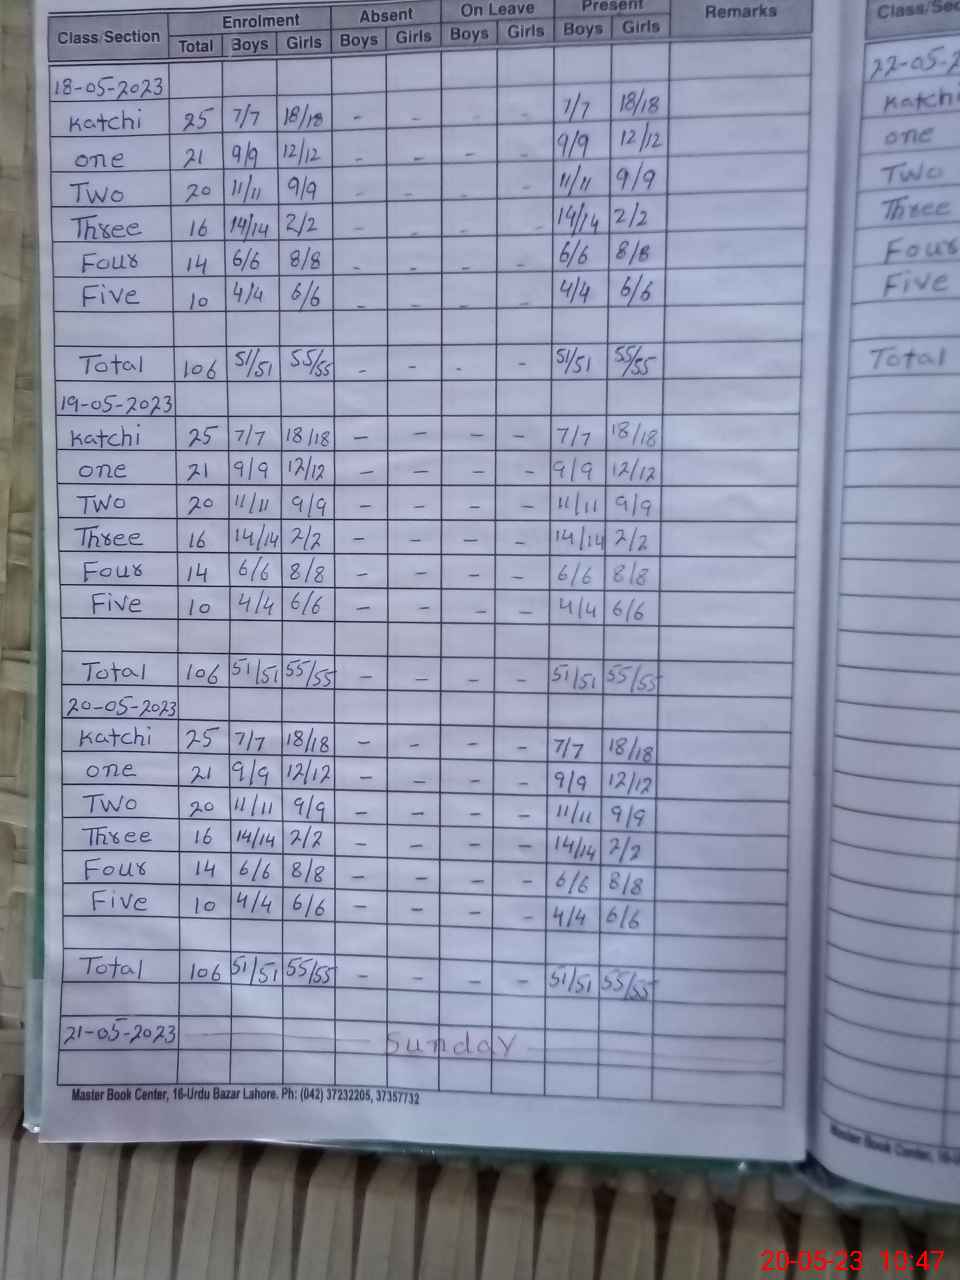 Class/Section Enrolment Absent On Leave Present Remarks
Total Boys Girls Boys Girls Boys Girls Boys Girls
18-05-2023
Katchi 25 7/7 18/18 - - - - 7/7 18/18
one 21 9/9 12/12 - - - - 9/9 12/12
Two 20 11/11 9/9 - - - - 11/11 9/9
Three 16 14/14 2/2 - - - - 14/14 2/2
Four 14 6/6 8/8 - - - - 6/6 8/8
Five 10 4/4 6/6 - - - - 4/4 6/6
Total 106 51/51 55/55 - - - - 51/51 55/55
19-05-2023
Katchi 25 7/7 18/18 - - - - 7/7 18/18
one 21 9/9 12/12 - - - - 9/9 12/12
Two 20 11/11 9/9 - - - - 11/11 9/9
Three 16 14/14 2/2 - - - - 14/14 2/2
Four 14 6/6 8/8 - - - - 6/6 8/8
Five 10 4/4 6/6 - - - - 4/4 6/6
Total 106 51/51 55/55 - - - - 51/51 55/55
20-05-2023
Katchi 25 7/7 18/18 - - - - 7/7 18/18
one 21 9/9 12/12 - - - - 9/9 12/12
Two 20 11/11 9/9 - - - - 11/11 9/9
Three 16 14/14 2/2 - - - - 14/14 2/2
Four 14 6/6 8/8 - - - - 6/6 8/8
Five 10 4/4 6/6 - - - - 4/4 6/6
Total 106 51/51 55/55 - - - - 51/51 55/55
21-05-2023 Sunday
Master Book Center, 16-Urdu Bazar Lahore. Ph: (042) 37232205, 37357732
Class/Sec
22-05-2
Katchi
one
Two
Three
Four
Five
Total
Master Book Center, 16-U
20-05-23 10:47